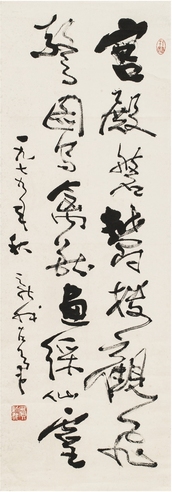 宮殿盤鬱樓觀飛
驚圖寫禽獸畫綵仙靈
一九七九年秋